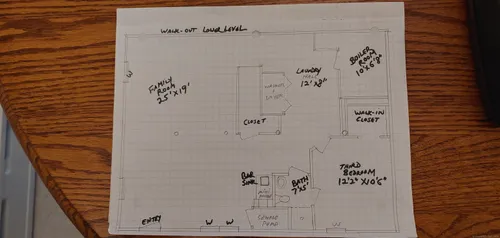 WALK-OUT LOWER LEVEL
W
FAMILY
ROOM
25'X19'
LAUNDRY
12'X8'
BOILER
ROOM
10'X6'8"
CLOSET
WALK-IN
CLOSET
BAR
SINK
BATH
7'X5'
THIRD
BEDROOM
12'2" X10'6"
ENTRY
W W